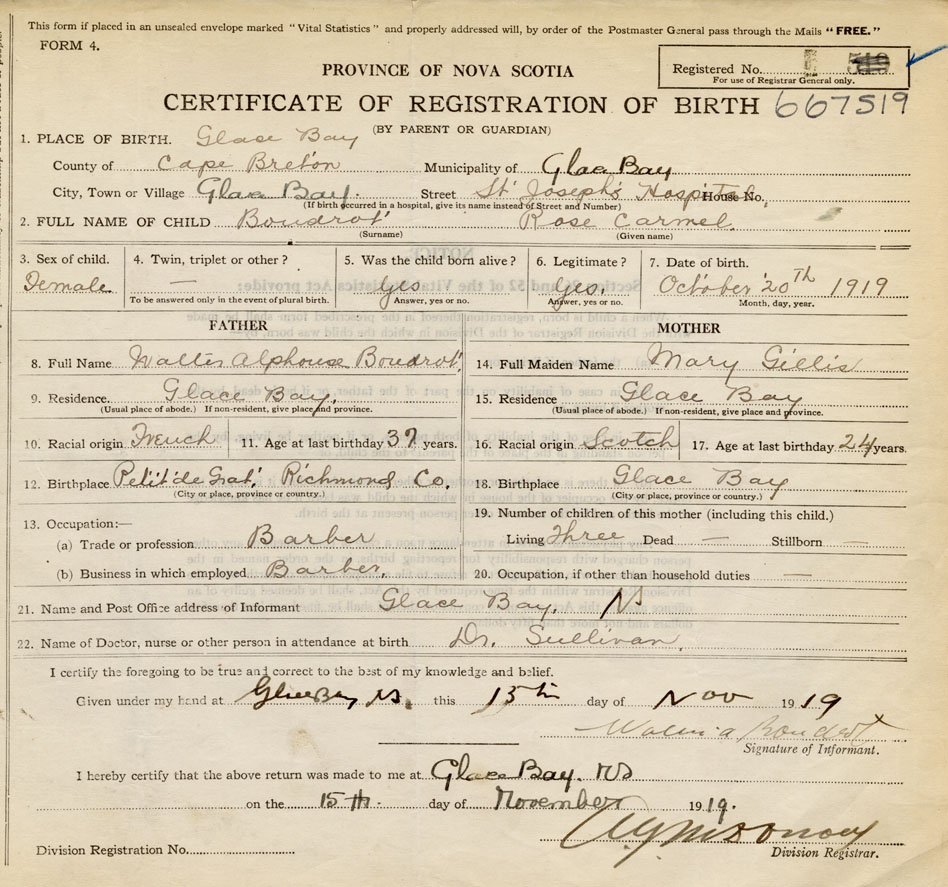 This form if placed in an unsealed envelope marked "Vital Statistics" and properly addressed will, by order of the Postmaster General pass through the Mails "FREE."
FORM 4.
PROVINCE OF NOVA SCOTIA
Registered No. 519
For use of Registrar General only.
CERTIFICATE OF REGISTRATION OF BIRTH 667519
(BY PARENT OR GUARDIAN)
1. PLACE OF BIRTH. Glace Bay
County of Cape Breton Municipality of Glace Bay
City, Town or Village Glace Bay. Street St Joseph's Hospital House No.
(If birth occurred in a hospital, give its name instead of Street and Number)
2. FULL NAME OF CHILD Boudrot Rose Carmel.
(Surname) (Given name)
3. Sex of child. 4. Twin, triplet or other? 5. Was the child born alive? 6. Legitimate? 7. Date of birth.
Female — yes yes. October 20TH 1919
To be answered only in the event of plural birth. Answer, yes or no. Answer, yes or no. Month, day, year.
FATHER MOTHER
8. Full Name Walter Alphonse Boudrot 14. Full Maiden Name Mary Gillis
9. Residence. Glace Bay. 15. Residence Glace Bay
(Usual place of abode.) If non-resident, give place and province. (Usual place of abode.) If non-resident, give place and province.
10. Racial origin French 11. Age at last birthday 37 years. 16. Racial origin Scotch 17. Age at last birthday 24 years.
12. Birthplace Petit de Grat Richmond Co. 18. Birthplace Glace Bay
(City or place, province or country.) (City or place, province or country.)
13. Occupation:— 19. Number of children of this mother (including this child.)
(a) Trade or profession Barber Living Three Dead — Stillborn —
(b) Business in which employed Barber. 20. Occupation, if other than household duties —
21. Name and Post Office address of Informant Glace Bay. NS
22. Name of Doctor, nurse or other person in attendance at birth Dr. Sullivan.
I certify the foregoing to be true and correct to the best of my knowledge and belief.
Given under my hand at Glace Bay NS. this 15th day of Nov 1919
Boudrot
Signature of Informant.
I hereby certify that the above return was made to me at Glace Bay. NS
on the 15th. day of November 1919.
Division Registration No. Division Registrar.